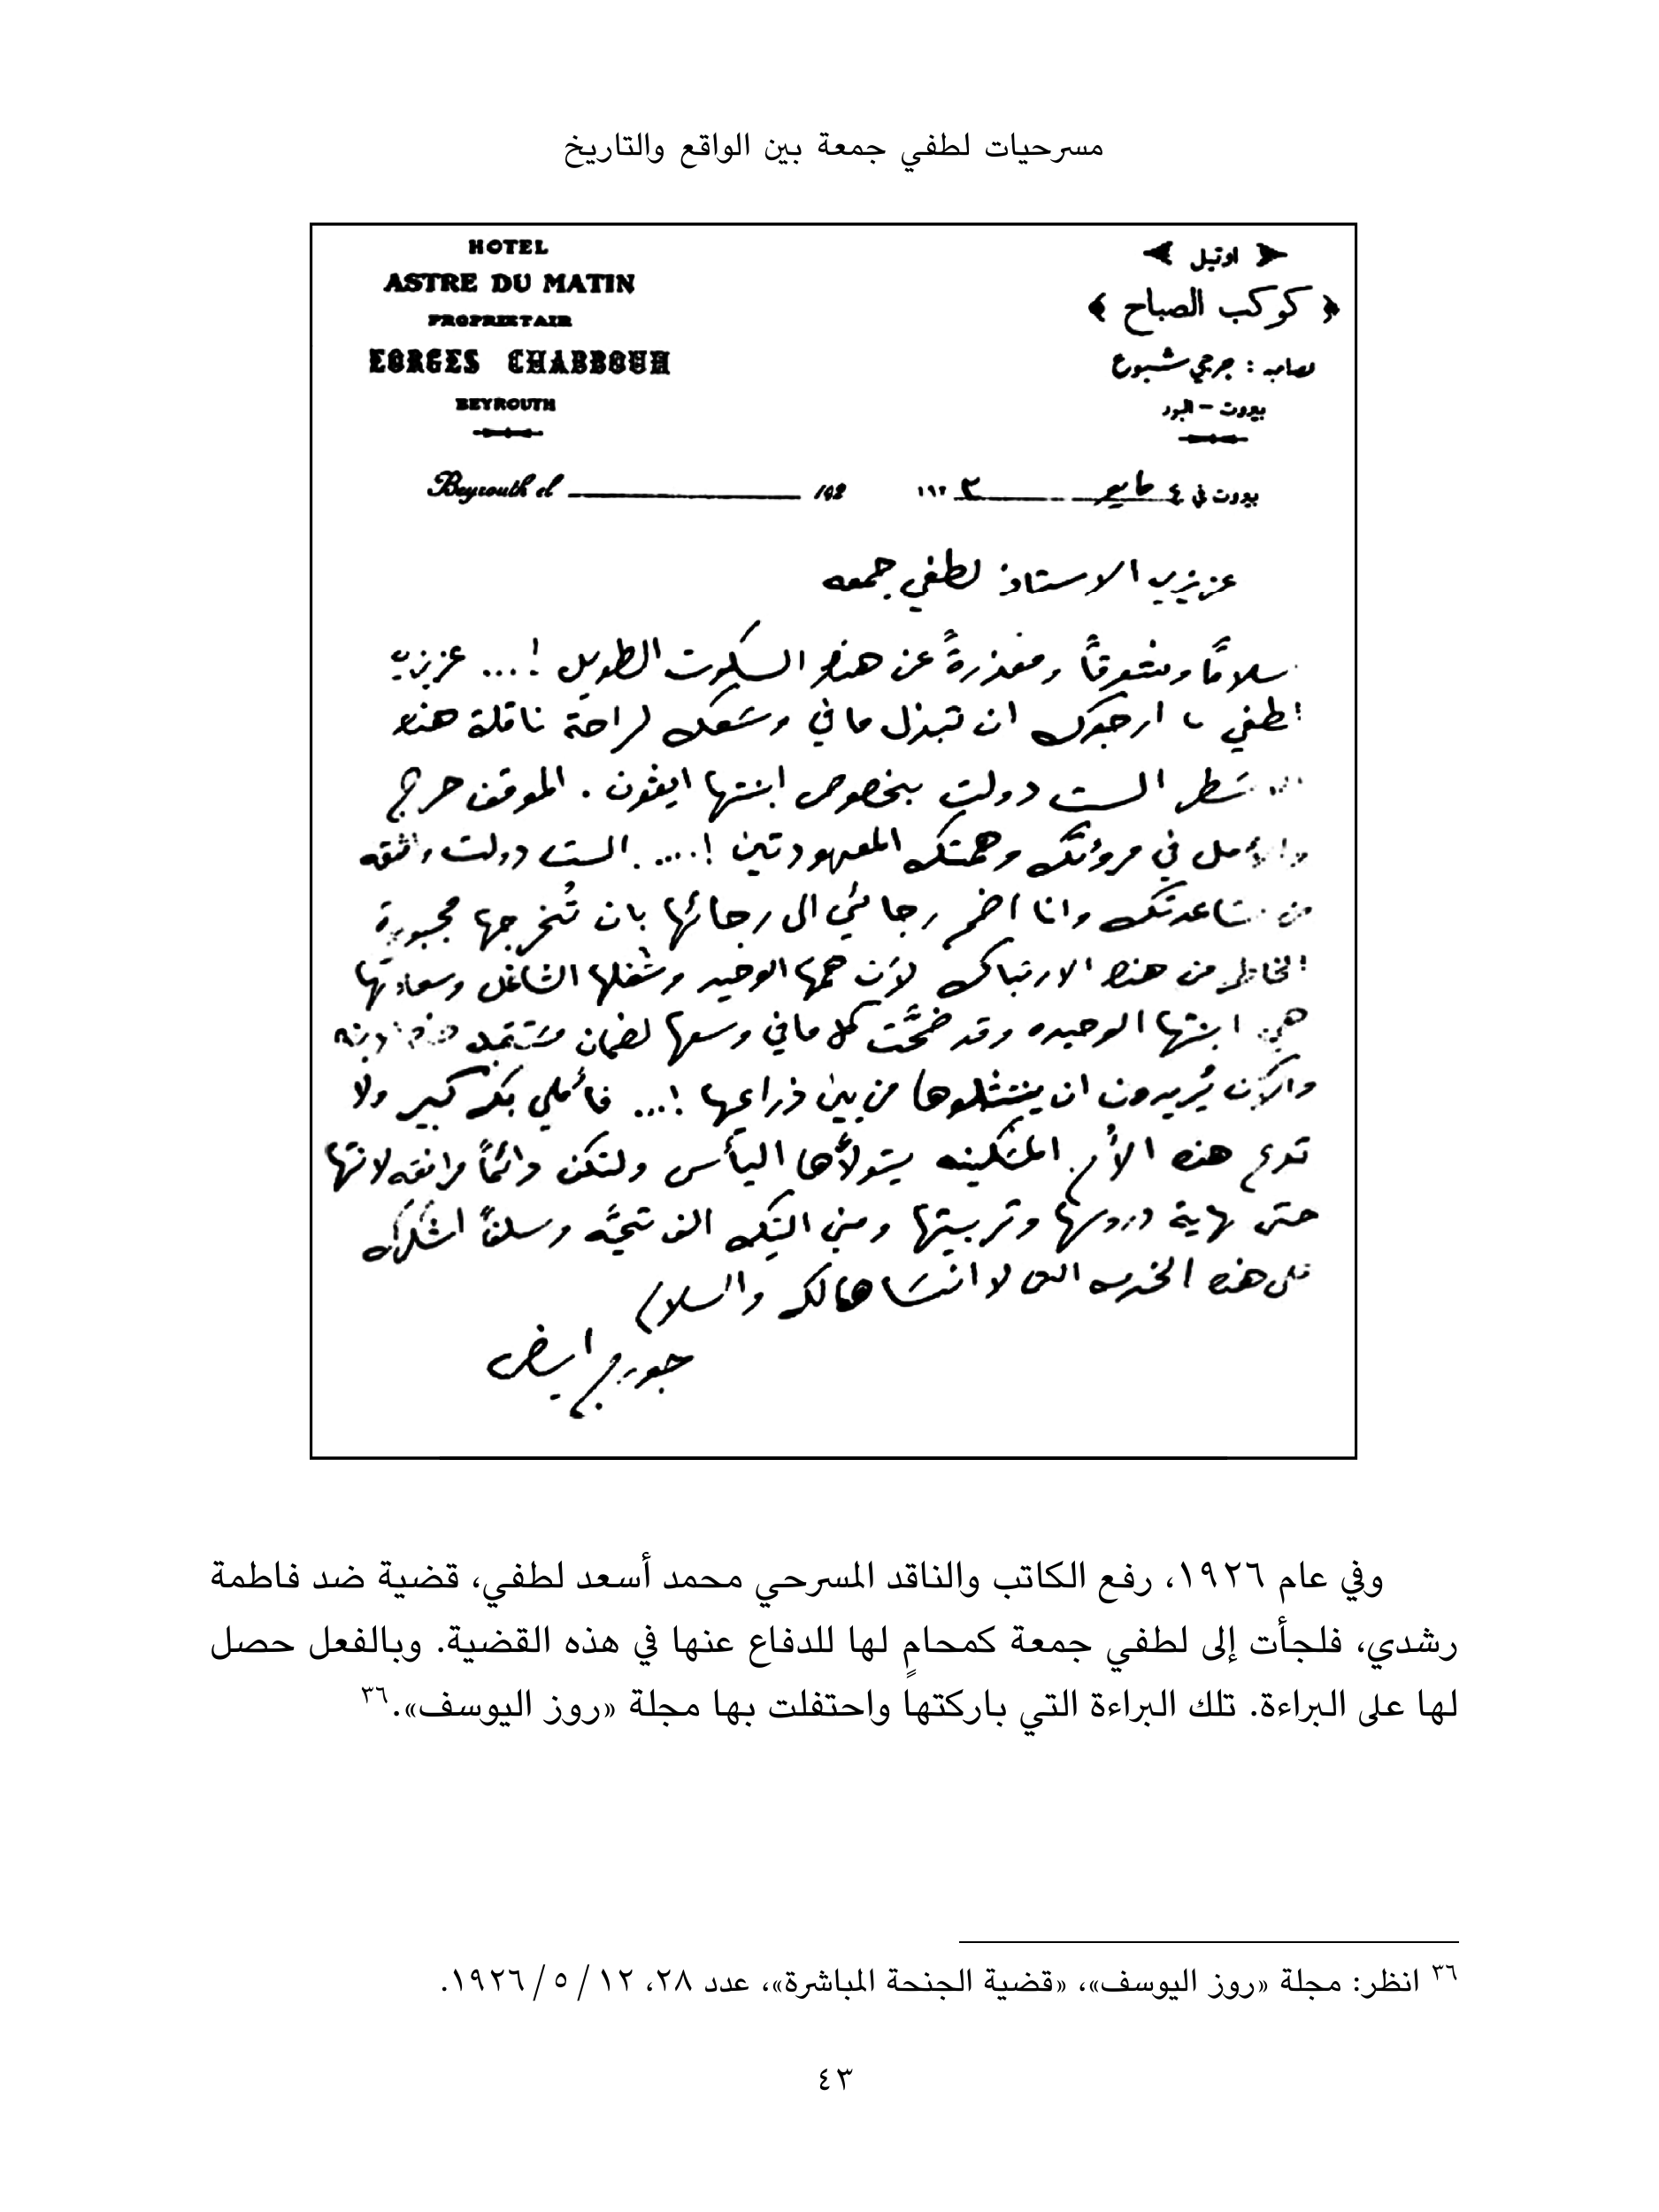 مسرحيات لطفي جمعة بين الواقع والتاريخ
HOTEL
ASTRE DU MATIN
PROPRIETAIR
EORGES CHABBOUH
BEYROUTH
اوتيل
﴿ كوكب الصباح ﴾
لصاحبه : جرجي شبوع
بيروت - البور
Beyrouth el 192
بيروت في ٤ مايو ١٩٢٣
عزيزي الاستاذ لطفي جمعه
سلامًا وشوقًا ومعذرةً عن هذا السكوت الطويل !... عزيزي
لطفي ارجوك ان تبذل ما في وسعك لراحة ناقلة هذه
الست دولت بخصوص ابنتها ايفون . الموقف حرج
والأمل في مروئتك وهمتك المعهودتين !.... الست دولت واثقه
من مساعدتك وانا اضم رجائي الى رجائها بان تُخرجها مجبورة
الخاطر من هذا الارتباك لأن همها الوحيد وشغلها الشاغل وسعادتها
هي ابنتها الوحيده وقد ضحَّت كل ما في وسعها لضمان مستقبل
والآن يُريدون ان ينتشلوها من بين ذراعيها !... فأملي بك كبير ولا
تدع هذه الأم المسكينه يتولاَّها اليأس ولتكن دائمًا مرافقه لابنتها
حتى نهاية دروسها وتربيتها ومني اليك الف تحيَّه وسلفًا اشكرك
على هذه الخدمه التي لا انساها لك والسلام
جورج ابيض
وفي عام ١٩٢٦، رفع الكاتب والناقد المسرحي محمد أسعد لطفي، قضية ضد فاطمة
رشدي، فلجأت إلى لطفي جمعة كمحامٍ لها للدفاع عنها في هذه القضية. وبالفعل حصل
لها على البراءة. تلك البراءة التي باركتها واحتفلت بها مجلة «روز اليوسف».٣٦
٣٦ انظر: مجلة «روز اليوسف»، «قضية الجنحة المباشرة»، عدد ٢٨، ١٢ / ٥ / ١٩٢٦.
٤٣